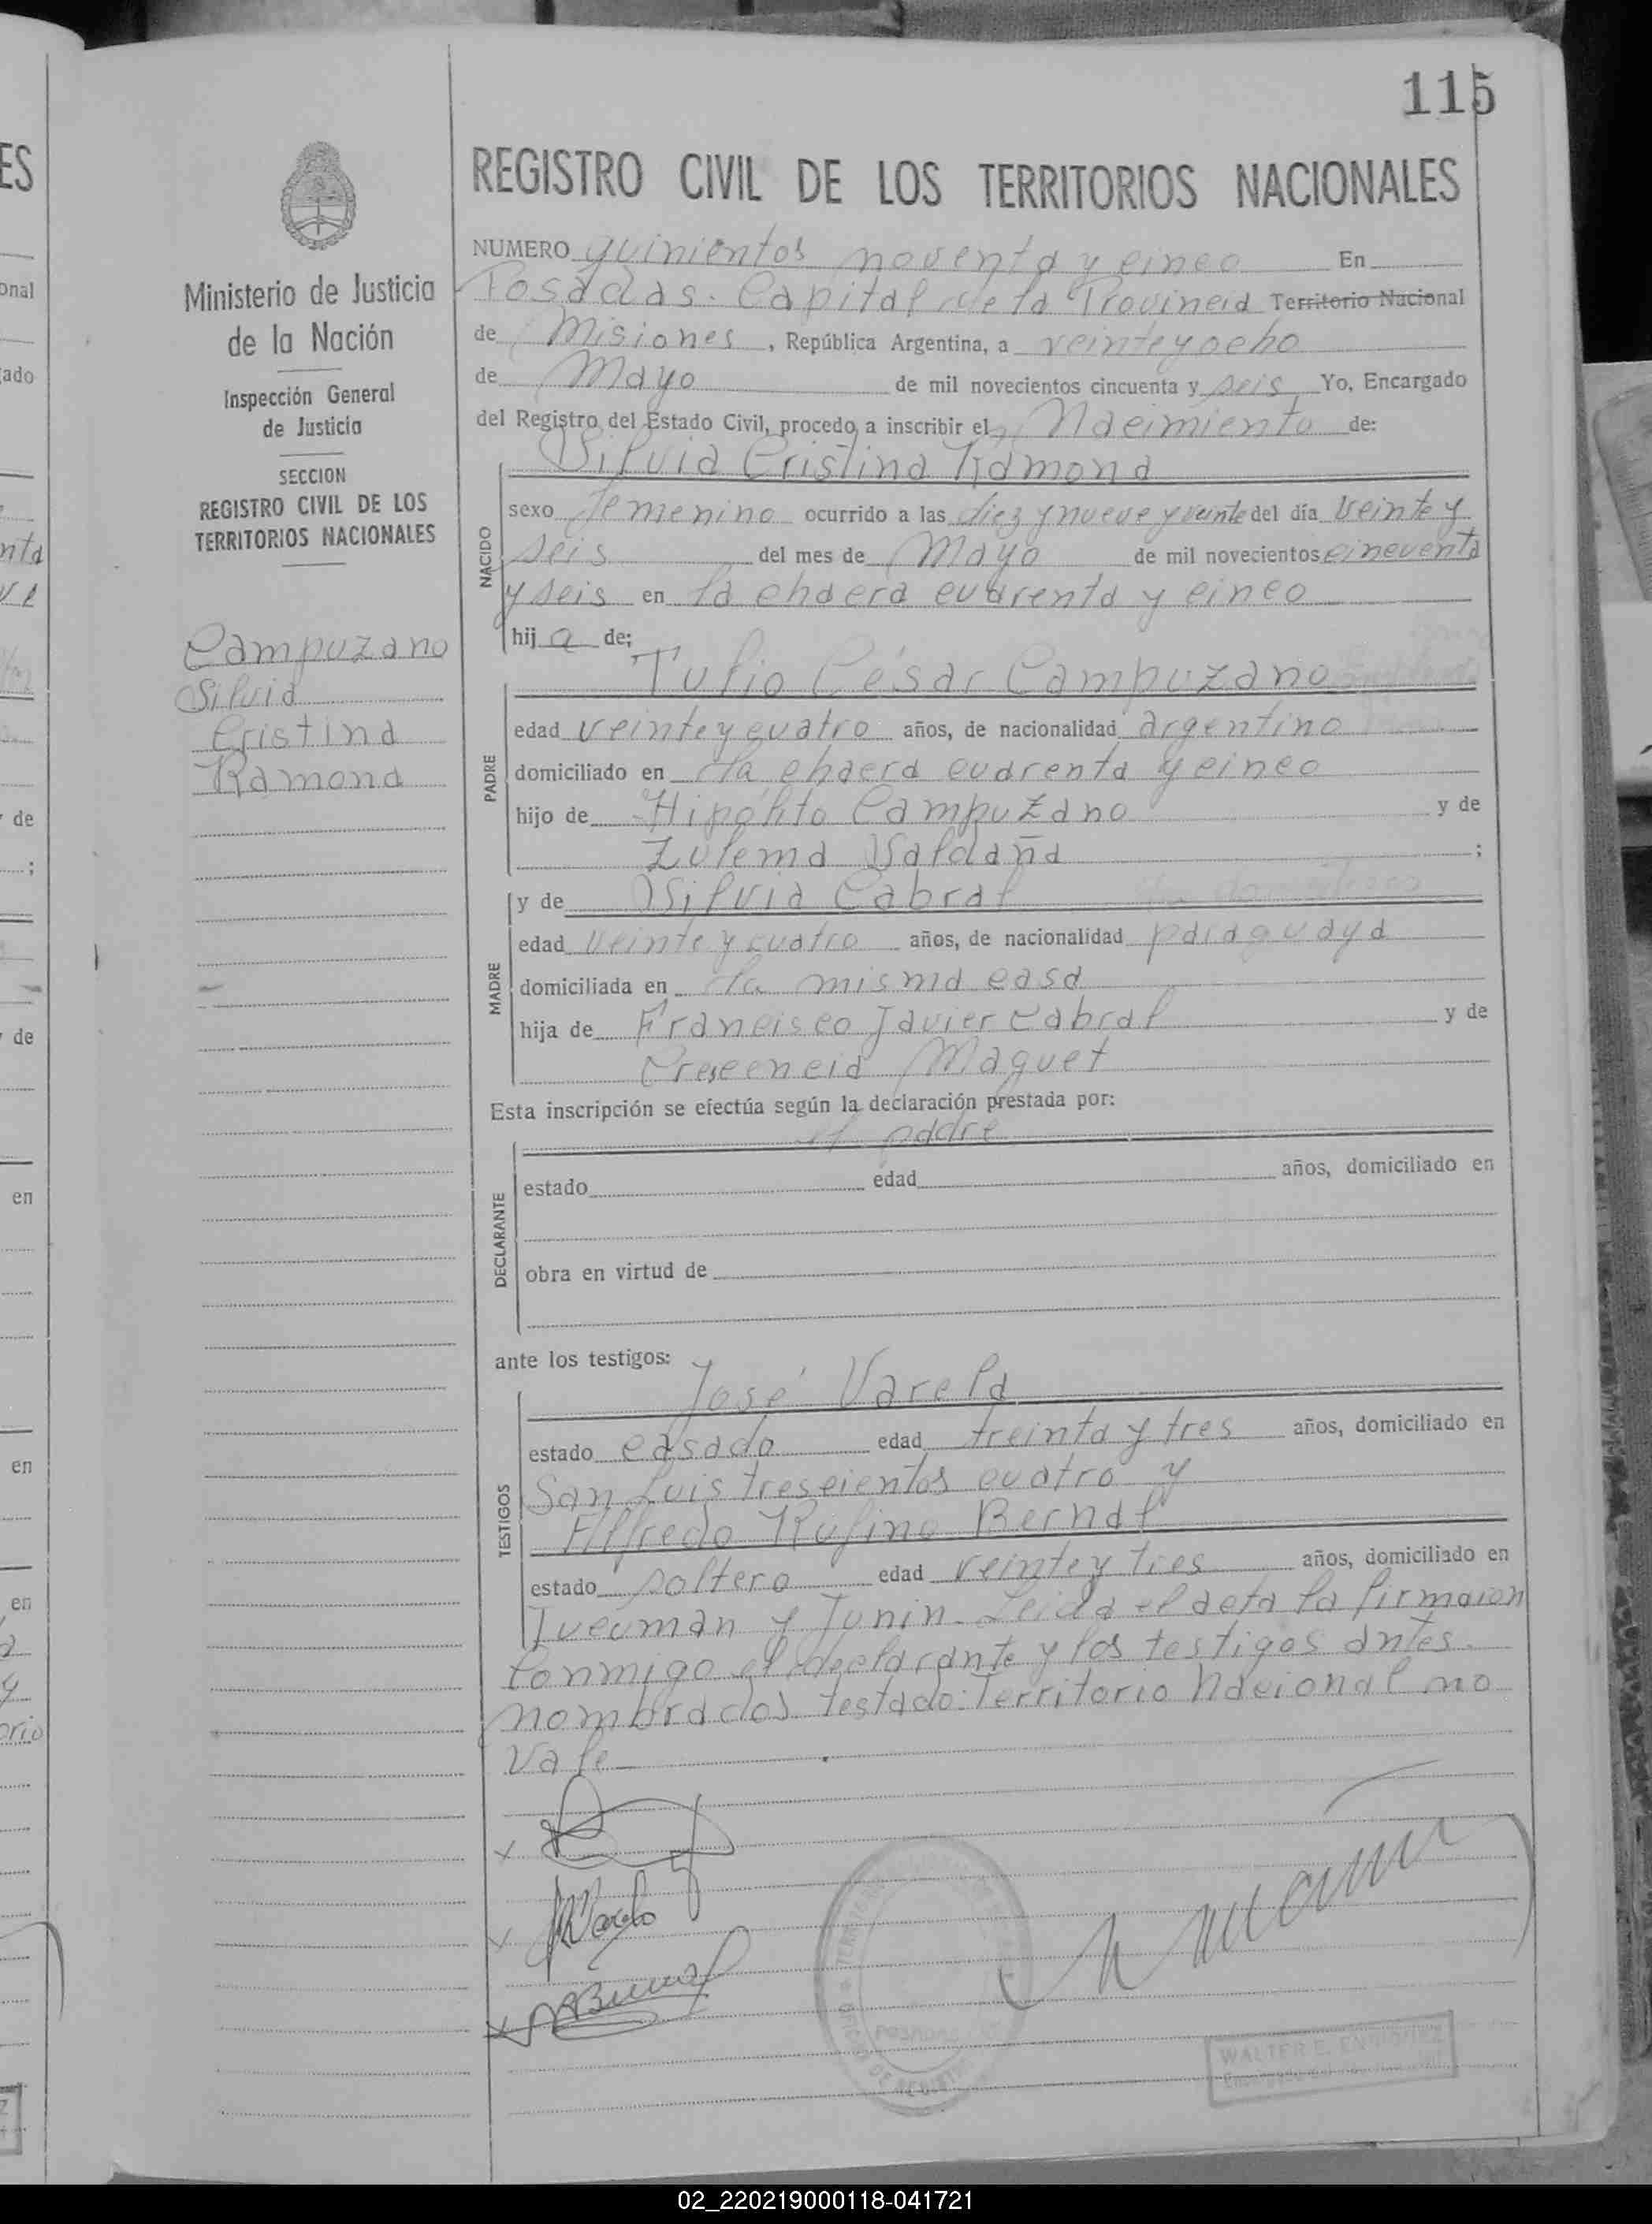 115
REGISTRO CIVIL DE LOS TERRITORIOS NACIONALES
Ministerio de Justicia
de la Nación
Inspección General
de Justicia
SECCION
REGISTRO CIVIL DE LOS
TERRITORIOS NACIONALES
Campuzano
Silvia
Cristina
Ramona
NUMERO quinientos noventa y cinco En
Posadas. Capital de la Provincia Territorio Nacional
de Misiones, República Argentina, a veinte y ocho
de Mayo de mil novecientos cincuenta y seis Yo, Encargado
del Registro del Estado Civil, procedo a inscribir el Nacimiento de:
Silvia Cristina Ramona
NACIDO
sexo femenino ocurrido a las diez y nueve y veinte del día veinte y
seis del mes de Mayo de mil novecientos cincuenta
y seis en la chacra cuarenta y cinco
hija de:
Tulio César Campuzano
PADRE
edad veinte y cuatro años, de nacionalidad argentino
domiciliado en la chacra cuarenta y cinco
hijo de Hipólito Campuzano y de
Zulema Saldaña ;
y de Silvia Cabral
MADRE
edad veinte y cuatro años, de nacionalidad paraguaya
domiciliada en la misma casa
hija de Francisco Javier Cabral y de
Crescencia Maguet
Esta inscripción se efectúa según la declaración prestada por:
el padre
DECLARANTE
estado edad años, domiciliado en
obra en virtud de
ante los testigos:
José Varela
TESTIGOS
estado casado edad treinta y tres años, domiciliado en
San Luis trescientos cuatro y
Alfredo Rufino Bernal
estado soltero edad veinte y tres años, domiciliado en
Tucuman y Junin. Leida el acta la firmaron
conmigo el declarante y los testigos antes
nombrados testado: Territorio Nacional no
vale
POSADAS
WALTER E.
02_220219000118-041721